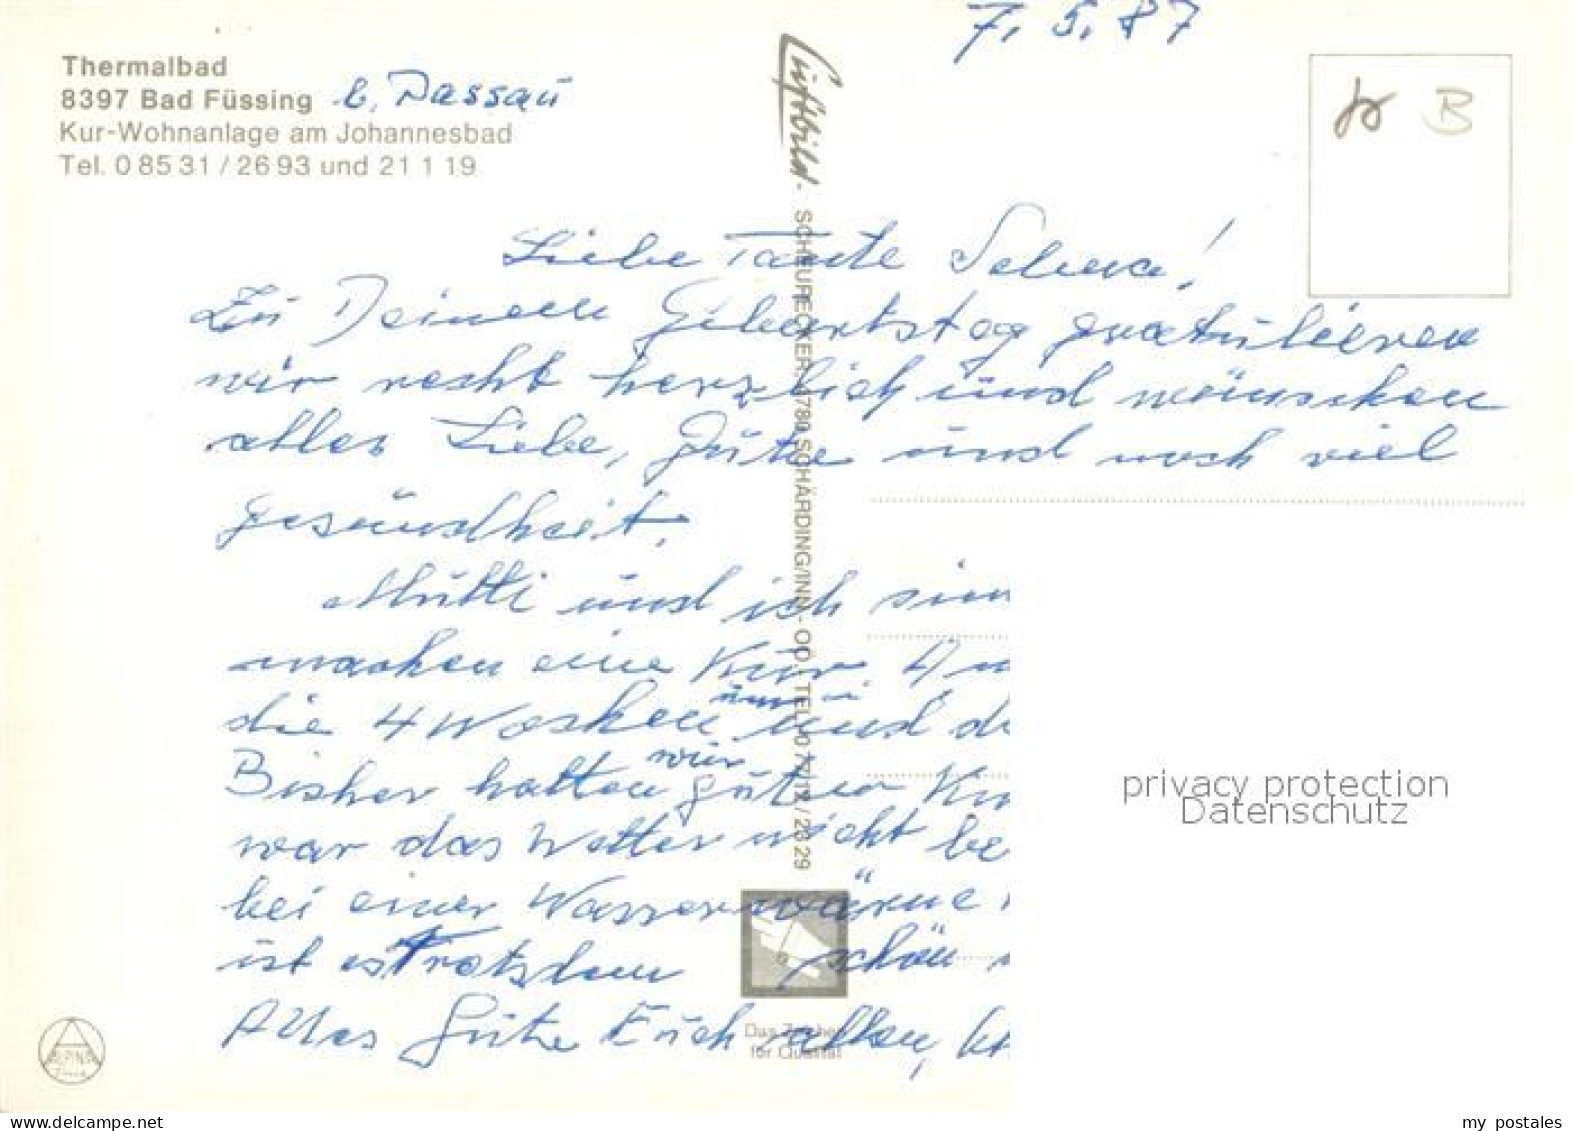 7. 5. 87
Thermalbad
8397 Bad Füssing b. Passau
Kur-Wohnanlage am Johannesbad
Tel. 0 85 31 / 26 93 und 21 1 19
Luftbild - SCHEURECKER, 4780 SCHÄRDING/INN - OÖ - TEL. 0 77 12 / 23 29
B
Liebe Tante
Zu Deinem Geburtstag gratulieren
wir recht herzlich und wünschen
alles Liebe, Gute und noch viel
gesundheit.
Mutti und ich sin
machen eine Kur
die 4 Wochen und d
Bisher hatten wir guten
war das Wetter nicht be
bei einer Wasserwärme
ist es Trotzdem schön
Alles Gute Euch allen,
privacy protection
Datenschutz
Das Zeichen
für Qualität
ALPINA
Druck
www.delcampe.net
my_postales